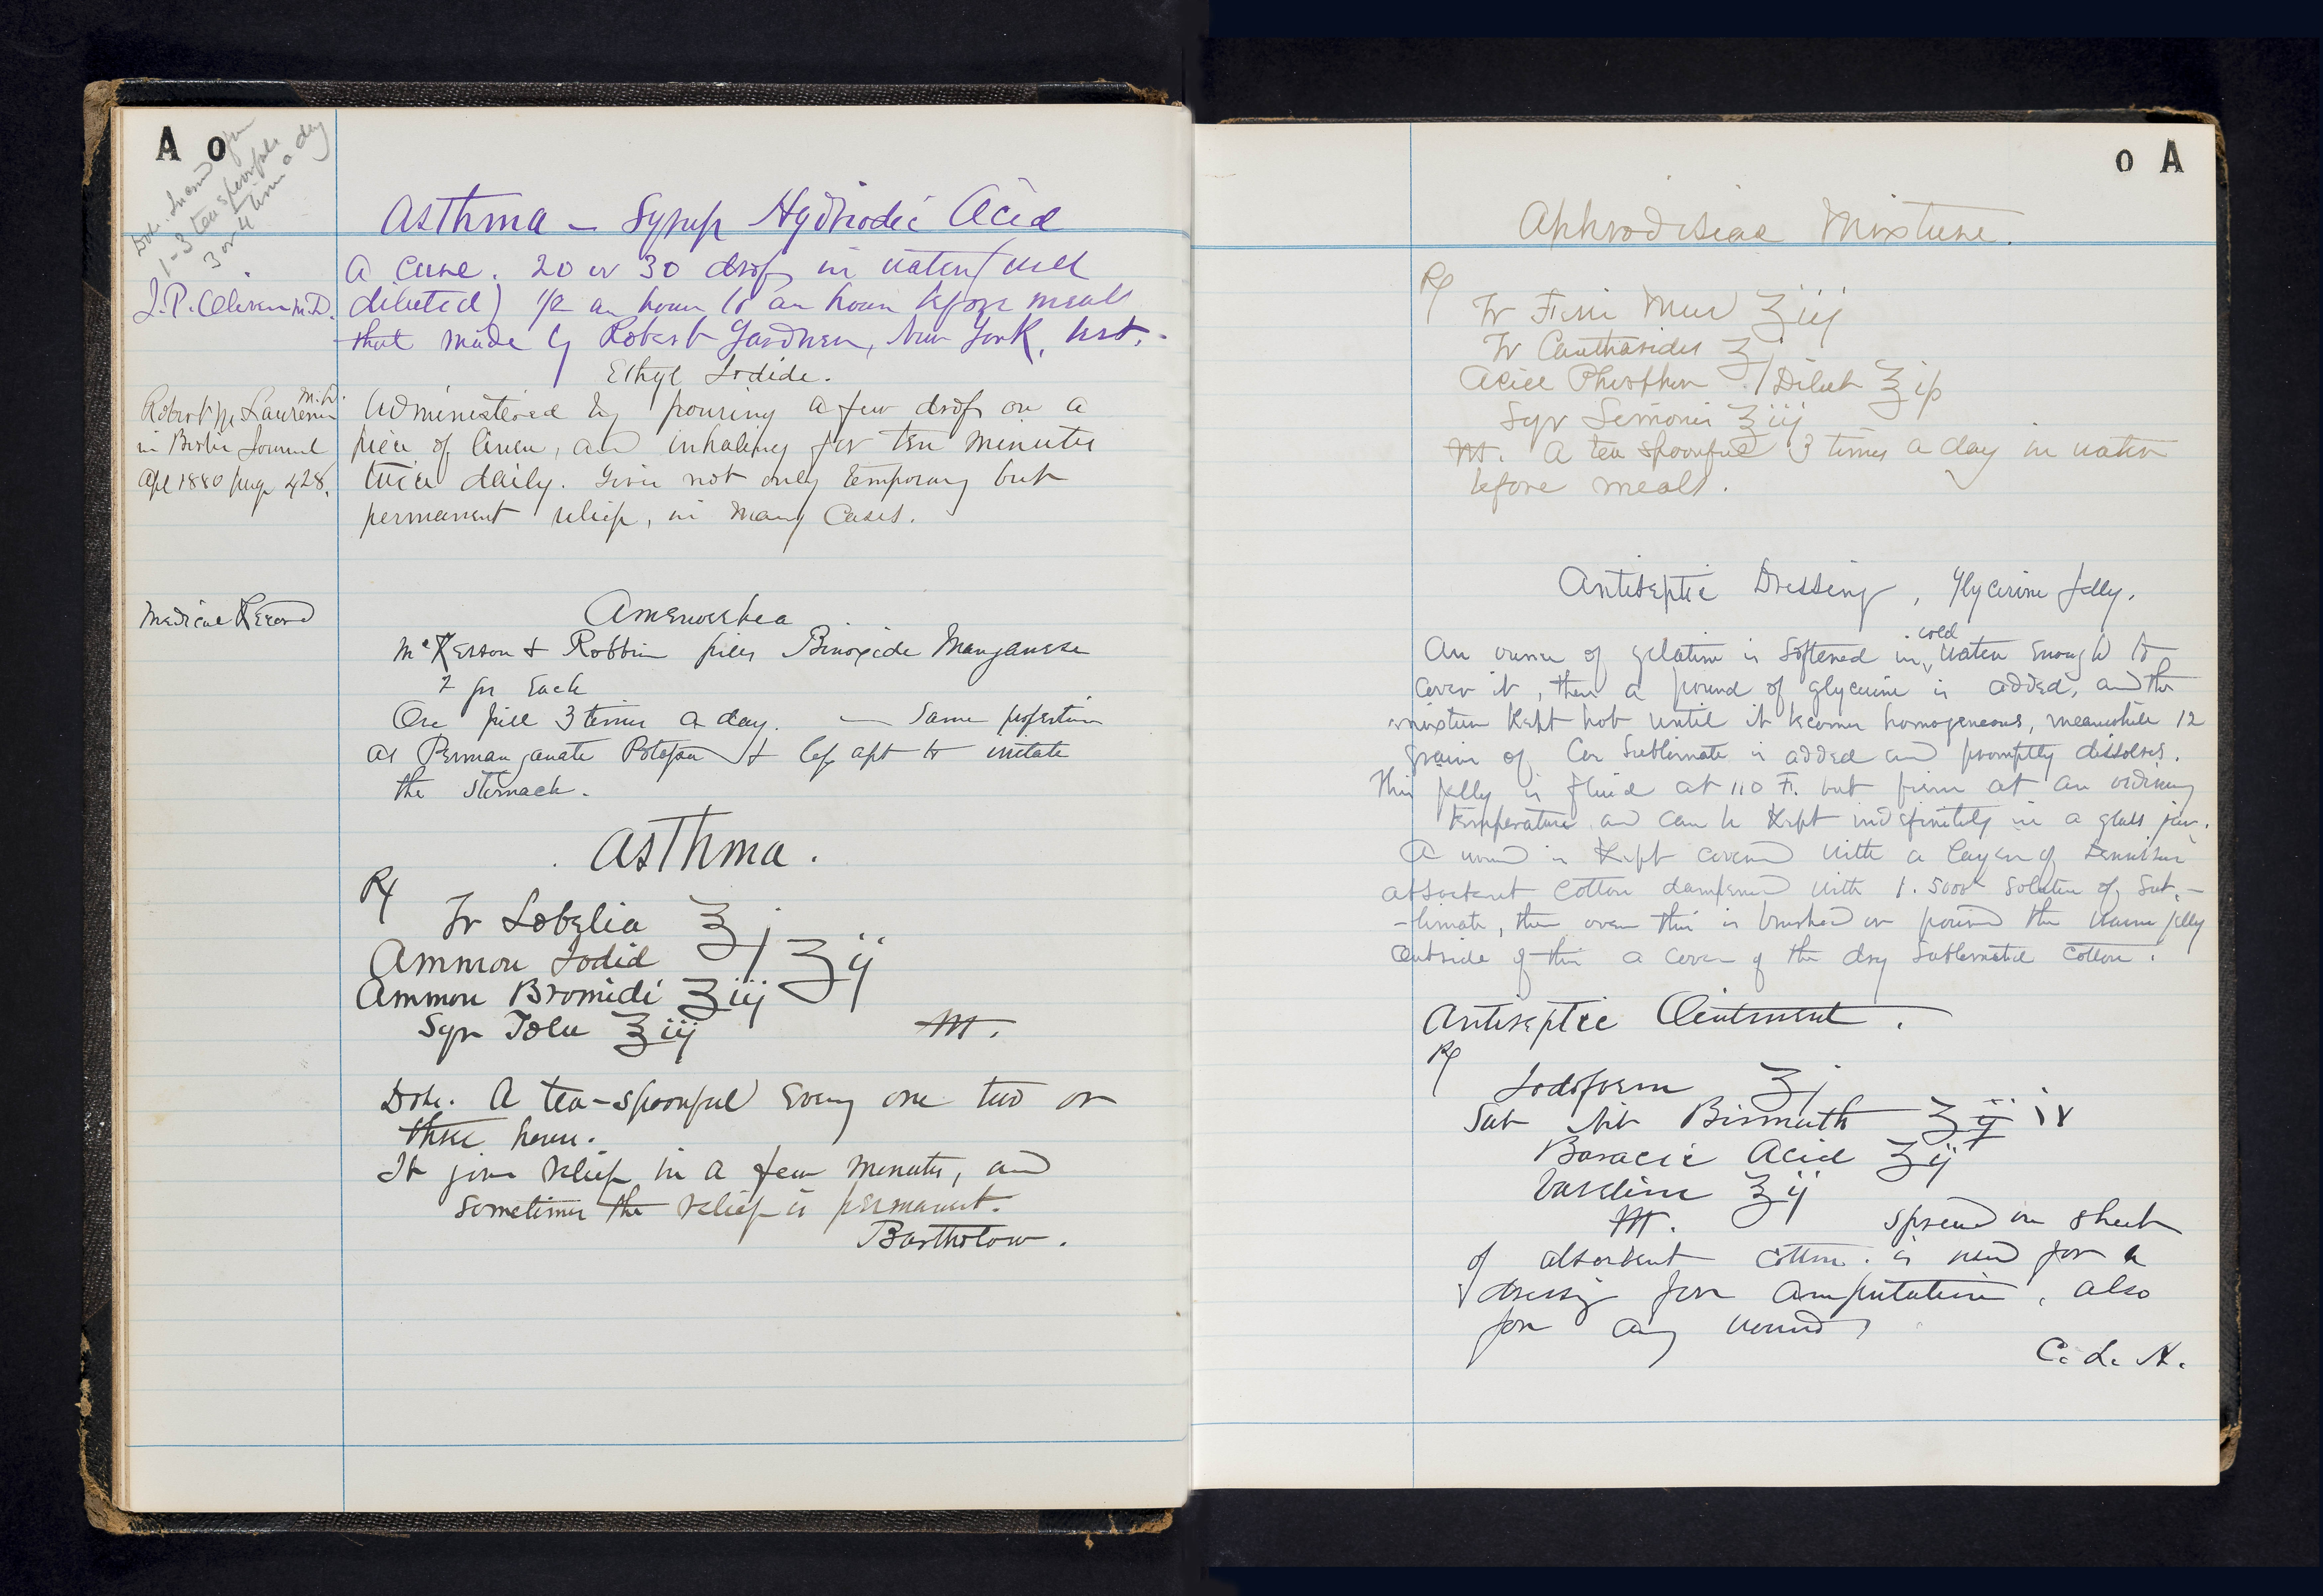 A o
Dose. Increased from
1-3 teaspoonfuls
3 or 4 times a day
Asthma – Syrup Hydriodic Acid
J. P. Oliver M.D.
A cure. 20 or 30 drops in water (well
diluted) 1/2 an hour to an hour before meals
that made by Robert Gardner, New York, best.-
Ethyl Iodide.
Robert M. Lawrence M.D.
in Boston Journal
Apl 1880 page 428.
Administered by pouring a few drops on a
piece of linen, and inhaling for ten minutes
twice daily. Gives not only temporary but
permanent relief, in many cases.
Medical Record
Amenorrhea
McKesson & Robbins pills Binoxide Manganese
2 gr each
One pill 3 times a day. — Same properties
as Permanganate Potassa & less apt to irritate
the stomach.
Asthma.
Rx
Tr Lobelia ʒj
Ammon Iodid ʒij
Ammon Bromidi ʒiij
Syr Tolu ℥iij
M.
Dose. A tea-spoonful every one two or
three hours.
It gives relief in a few minutes, and
sometimes the relief is permanent.
Bartholow.
o A
Aphrodisiac Mixture.
Rx
Tr Ferri Mur ʒiij
Tr Cantharides ʒj
Acid Phosphor Dilut ℥iß
Syr Limonis ℥iij
M. A tea spoonful 3 times a day in water
before meals.
Antiseptic Dressing, Glycerine Jelly.
An ounce of gelatine is softened in cold water enough to
cover it, then a pound of glycerine is added, and the
mixture kept hot until it becomes homogeneous, meanwhile 12
grains of Cor Sublimate is added and promptly dissolves.
This jelly is fluid at 110 F. but firm at an ordinary
temperature and can be kept indefinitely in a glass jar.
A wound is kept covered with a layer of
absorbent cotton dampened with 1.5000 solution of Sub.-
-limate, then over this is brushed or poured the warm jelly
Outside of this a cover of the dry sublimated cotton.
Antiseptic Ointment.
Rx
Iodoform ʒj
Sub Nit Bismuth ʒij iv
Boracic Acid ʒij
Vaseline ℥ij
M. Spread on sheet
of absorbent cotton. is used for a
dressing for amputations, also
for any wounds
C. L. H.